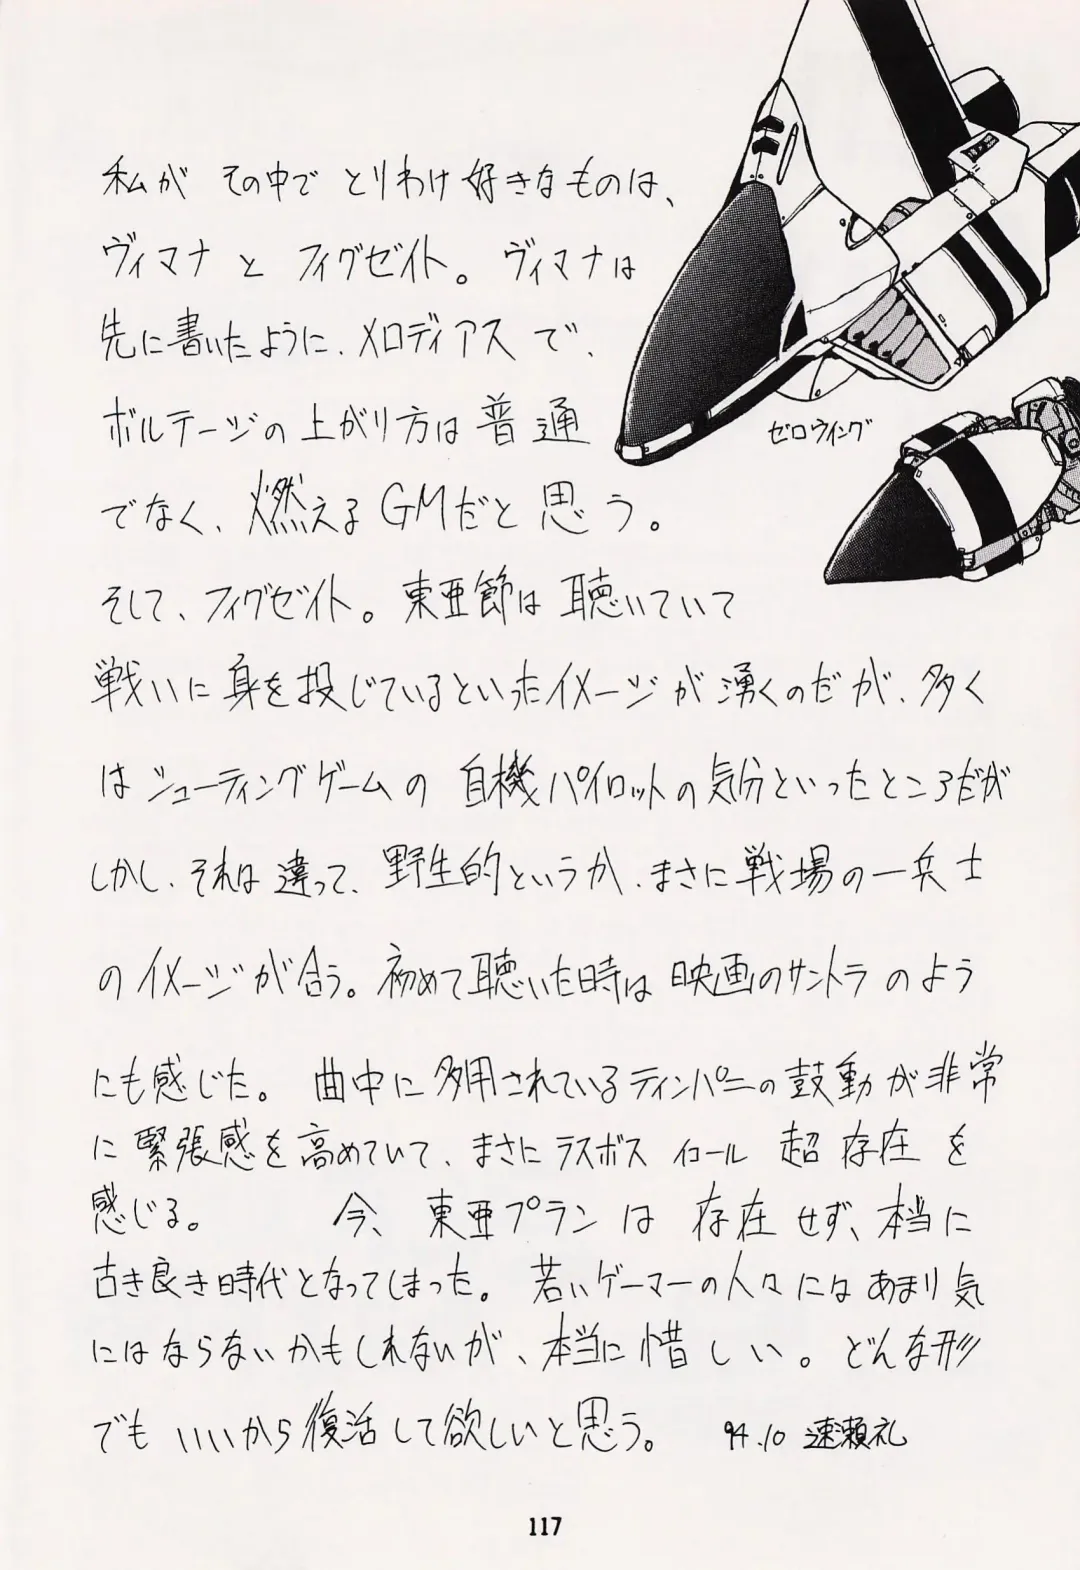 私が その中で とりわけ好きなものは、
ヴィマナ と フィグゼイト。ヴィマナは
先に書いたように、メロディアスで、
ボルテージの上がり方は普通
でなく、燃えるGMだと思う。
そして、フィグゼイト。東亜節は聴いていて
戦いに身を投じているといったイメージが湧くのだが、多く
はシューティングゲームの 自機パイロットの気分といったところだが
しかし、それは違って、野生的というか、まさに戦場の一兵士
のイメージが合う。初めて聴いた時は映画のサントラのよう
にも感じた。 曲中に多用されているティンパニーの鼓動が非常
に緊張感を高めていて、まさにラスボス イコール 超存在を
感じる。 今、東亜プランは存在せず、本当に
古き良き時代となってしまった。若いゲーマーの人々にはあまり気
にはならないかもしれないが、本当に惜しい。どんな形
でもいいから復活して欲しいと思う。 94.10 速瀬礼
ゼロウイング
117